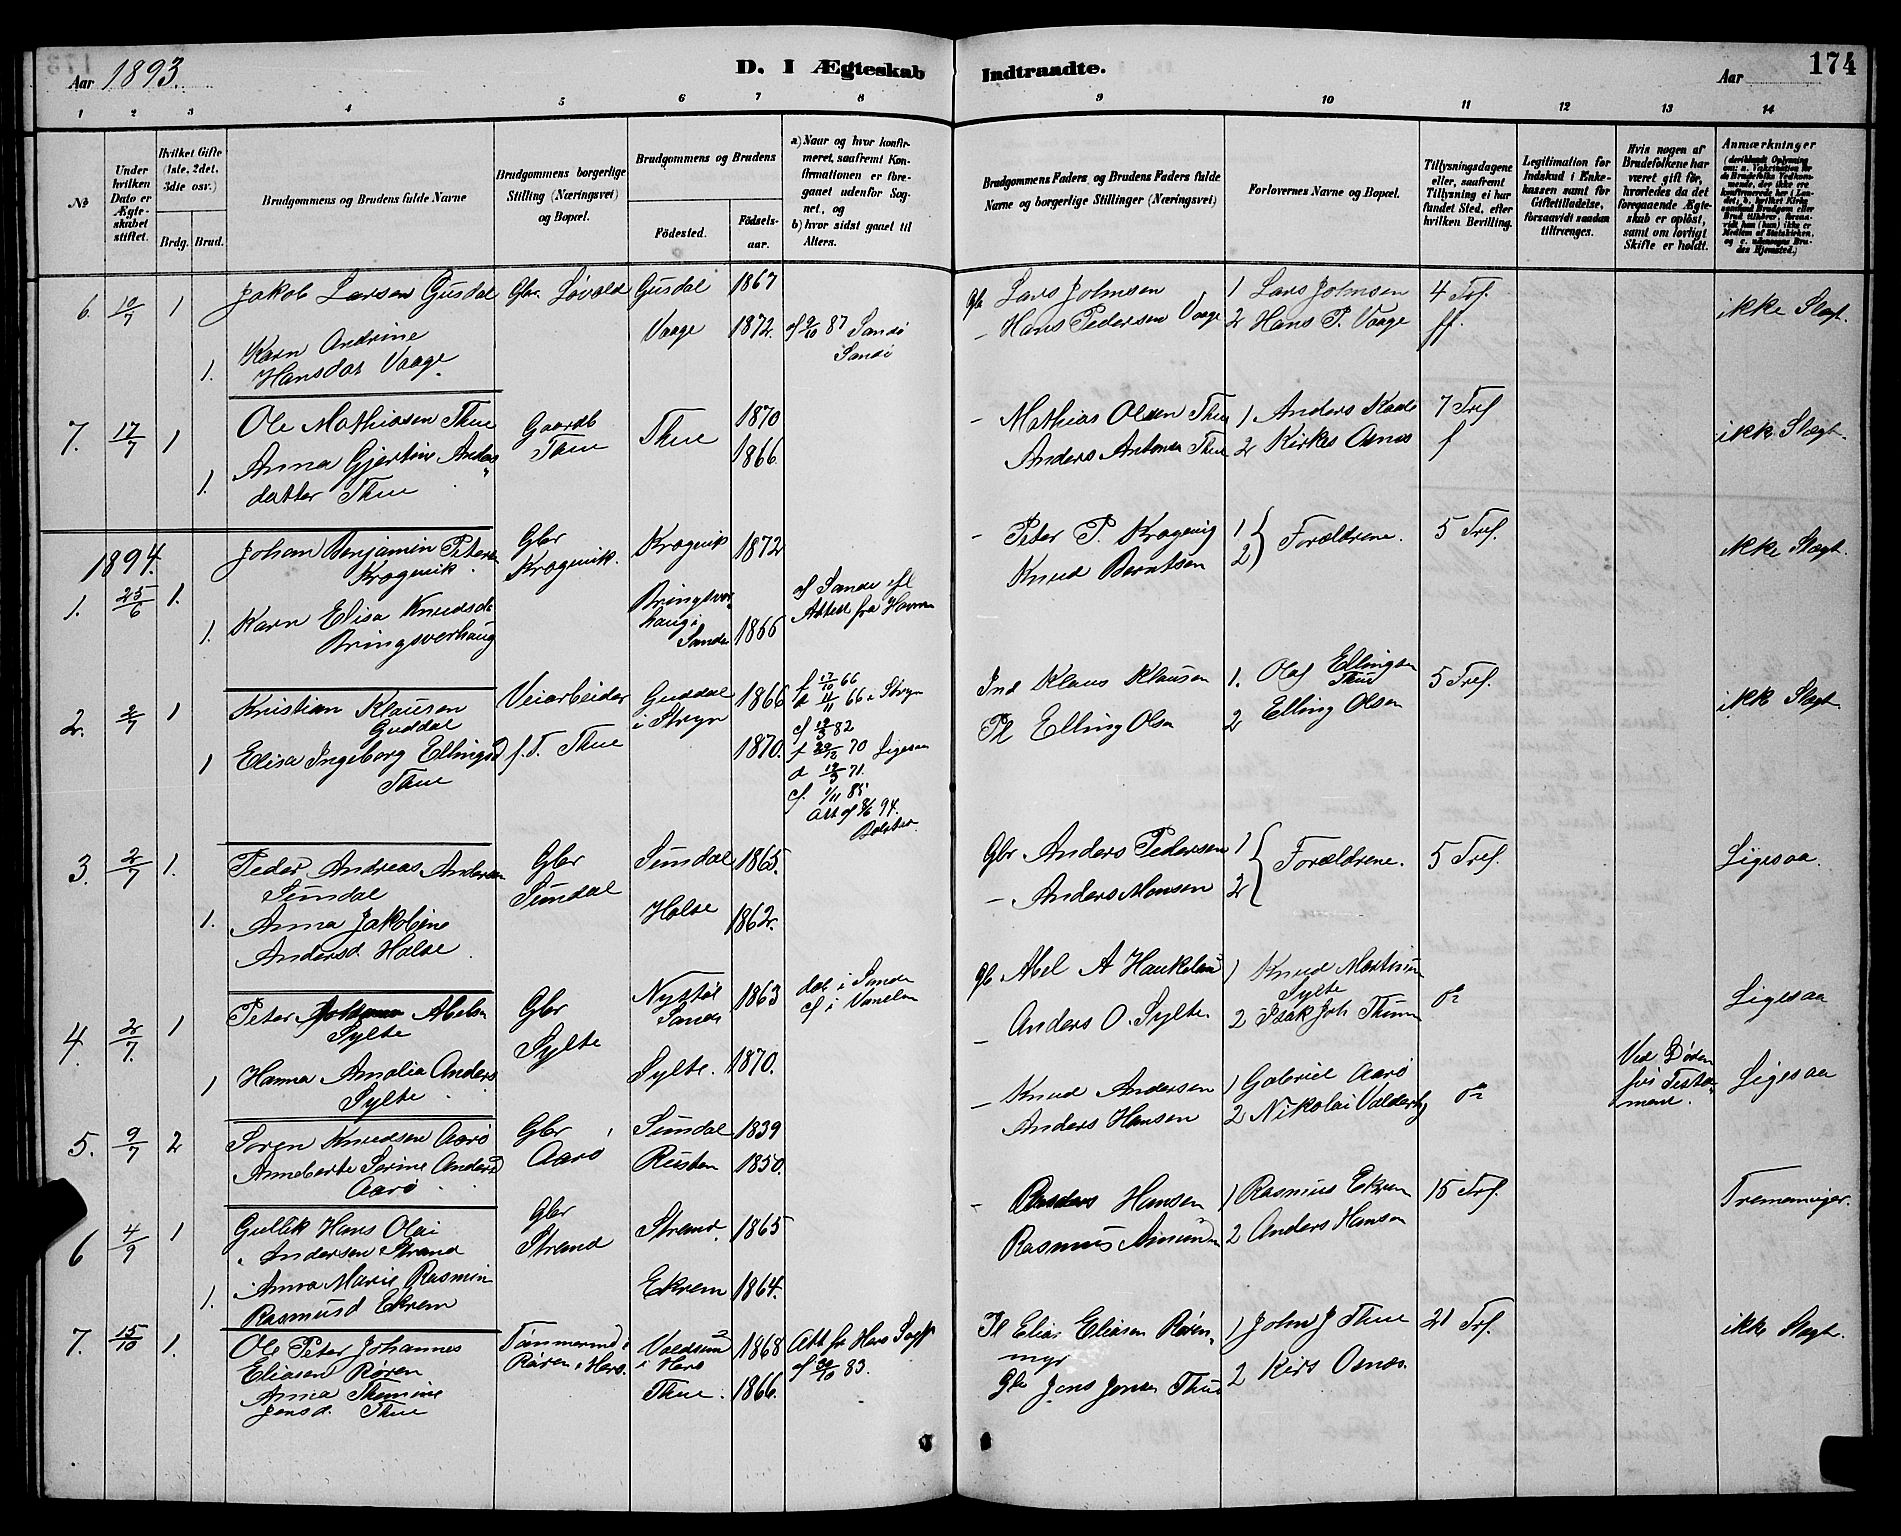 Aar 1893.
D. I Ægteskab Indtraadte.
Aar
174
1 2 3 4 5 6 7 8 9 10 11 12 13 14
No
Under hvilken Dato er Ægteskabet stiftet.
Hvilket Gifte (1ste, 2det, 3die osv.)
Brdg. Brud.
Brudgommens og Brudens fulde Navne
Brudgommens borgerlige Stilling (Næringsvei) og Bopæl.
Brudgommens og Brudens
Fødested.
Fødselsaar.
a) Naar og hvor konfirmeret, saafremt Konfirmationen er foregaaet udenfor Sognet, og
b) hvor sidst gaaet til Alters.
Brudgommens Faders og Brudens Faders fulde Navne og borgerlige Stillinger (Næringsvei)
Forlovernes Navne og Bopæl.
Tillysningsdagene eller, saafremt Tillysning ei har fundet Sted, efter hvilken Bevilling.
Legitimation for Indskud i Enkekassen samt for Giftetilladelse, forsaavidt saadan tiltrænges.
Hvis nogen af Brudefolkene har været gift før, hvorledes da det foregaaende Ægteskab er opløst, samt om lovligt Skifte er holdt.
Anmærkninger
6. 10/7 1 Jakob Larsen Gusdal Gbr. Løvold Gusdal 1867 Gbr Lars Johnsen 1 Lars Johnsen 4 Tref. ikke Slægt.
1. Karn Andrine Hansdat Vaage. Vaage 1872. cf 9/10 87 Sandø Sandø – Hans Pedersen Vaage 2 Hans P. Vaage ff.
7. 17/7 1 Ole Mathiasen Thue Gaardb Thue Thue 1870 – Mathias Olsen Thue 1 Anders Kaade 7 Tref ikke Slægt.
1. Anna Gjertine Andersdatter Thue 1866. Anders Antonsen Thue 2 Kirkes Osnæs f
1894.
1. 25/6 1. Johan Benjamin Peters Kragevik. Gbr Kragevik. Kragevik 1872 – Peter P. Kragevig 1 Forældrene. 5 Tref. ikke Slægt.
1. Karn Elisa Knudsd. Bringsverhaug Bringsverhaug i Sande 1866 cf Sande efl Attest fra Havnen Knud Berntsen 2
2. 2/7 1 Kristian Klausen Guddal Veiarbeider Guddal i Stryn 1866 f 17/10 66 d 11/11 66 i Stryn cf 19/3 82 Ind Klaus Klausen 1. Olaf Ellingsen Thue 5 Tref. ikke Slægt.
1 Elisa Ingeborg Ellingsd Thue f.T. Thue 1870. f 20/12 70 Ligesaa d 19/3 71. cf. 1/11 85 Att af 8/6 94. Pl Elling Olsen 2 Elling Olsen
3. 2/7 1. Peder Andreas Andersen Sundal Gbr Sundal Sundal 1865. Gbr Anders Pedersen 1 Forældrene. 5 Tref. Ligesaa.
1. Anna Jakobine Andersd. Halse. Halse 1862. – Anders Monsen 2
4. 2/7. 1 Peter Abelsen Sylte Gbr Sylte Nystøl Sande 1863 døb i Sande cf i Vanelven Gb Abel A Haukeland 1 Knud Martinsen Sylte Do Ligesaa
1 Hanna Amalia Anders Sylte. Sylte. 1870. – Anders O. Sylte. 2 Isak Joh Thuen
5. 9/7 2 Søren Knudsen Aarø Gbr Aarø Sundal 1839 – Knud Andersen 1 Gabriel Aarø Do Ved Døden Ligesaa
Anneberte Serine Andersd Aarø. Rusten 1850. Anders Hansen 2 Nikolai Valderhg
6 4/9 1 Gullik Hans Olai Andersen Strand Gbr Strand Strand. 1865 – Hansen 1 Rasmus Ekrem 15 Tref. Tremenninger.
1. Anna Marie Rasmin Rasmusd Ekrem Ekrem 1864. Rasmus Amund 2 Anders Hansen
7. 15/10 1. Ole Peter Johannes Eliasen Røren Tømmermand i Røren i Herø. Voldsund i Herø 1868 Att fra Herø Sogn cf 30/10 83. Pl Elias Eliasen Rørenmyr 1 John J Thue 21 Tref. ikke Slægt.
Anna Thomine Jensd. Thue Thue. 1866. Gbr Jens Jensen Thue 2 Kirs Osnæs.